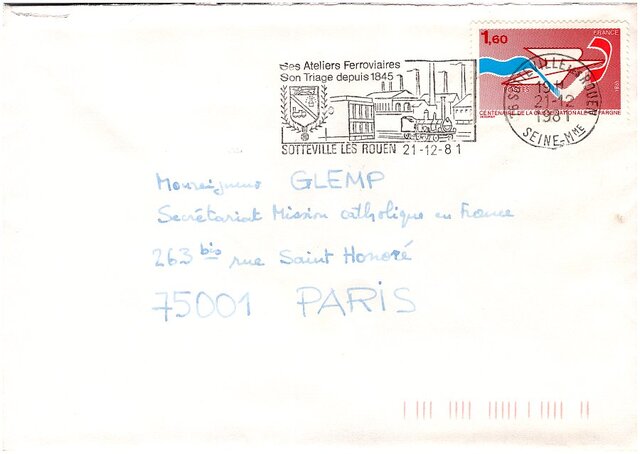 Ses Ateliers Ferroviaires
Son Triage depuis 1845
SOTTEVILLE LES ROUEN 21-12-81
1,60
FRANCE
CENTENAIRE DE LA CAISSE NATIONALE D'EPARGNE
76 SOTTEVILLE LES ROUEN
19 H
21-12
1981
SEINE-MME
Monseigneur GLEMP
Secrétariat Mission catholique en France
263 bis rue Saint Honoré
75001 PARIS